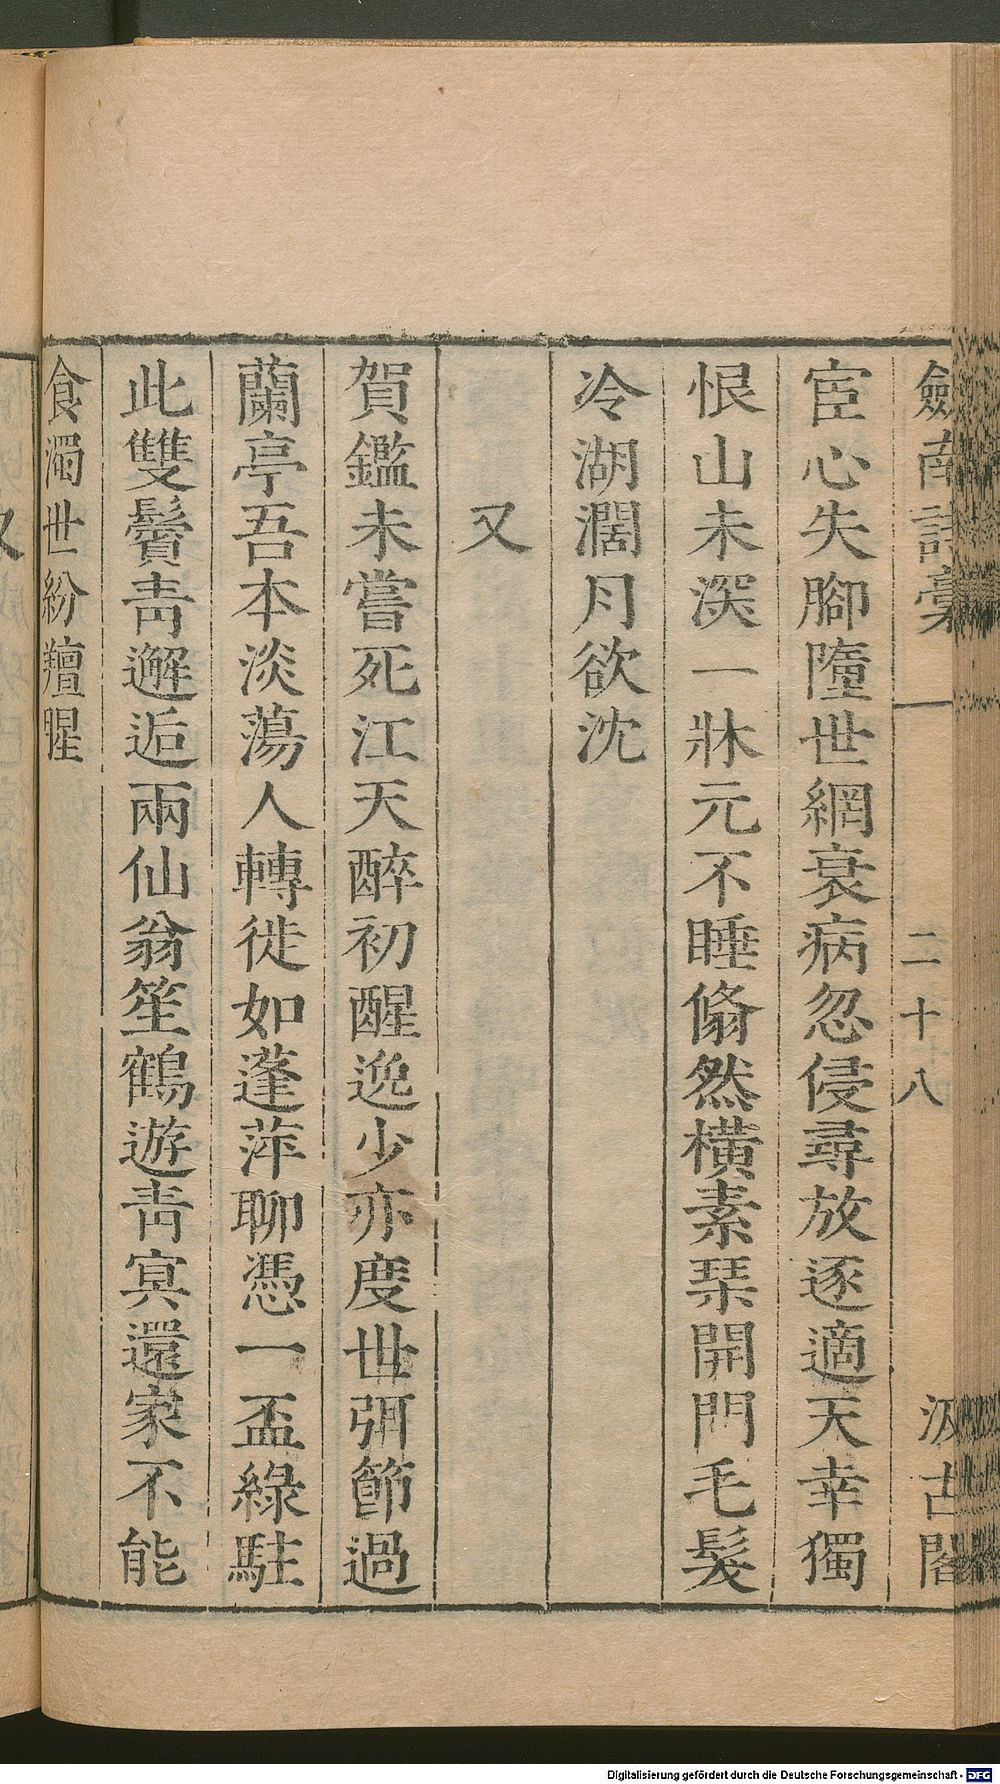 劒南詩稾 二十八 汲古閣
宦心失腳墮世網衰病忽侵尋放逐適天幸獨
恨山未深一牀元不睡翛然橫素琹開門毛髮
冷湖濶月欲沈
又
賀鑑未嘗死江天醉初醒逸少亦度世弭節過
蘭亭吾本淡蕩人轉徙如蓬萍聊憑一盃綠駐
此雙鬢青邂逅兩仙翁笙鶴遊青冥還家不能
食濁世紛羶腥
又
Digitalisierung gefördert durch die Deutsche Forschungsgemeinschaft - DFG